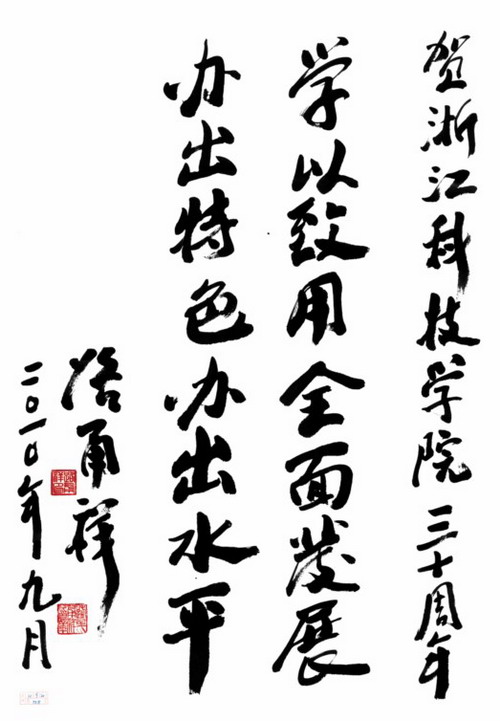 贺浙江科技学院三十周年
学以致用全面发展
办出特色办出水平
路甬祥
二〇一〇年九月